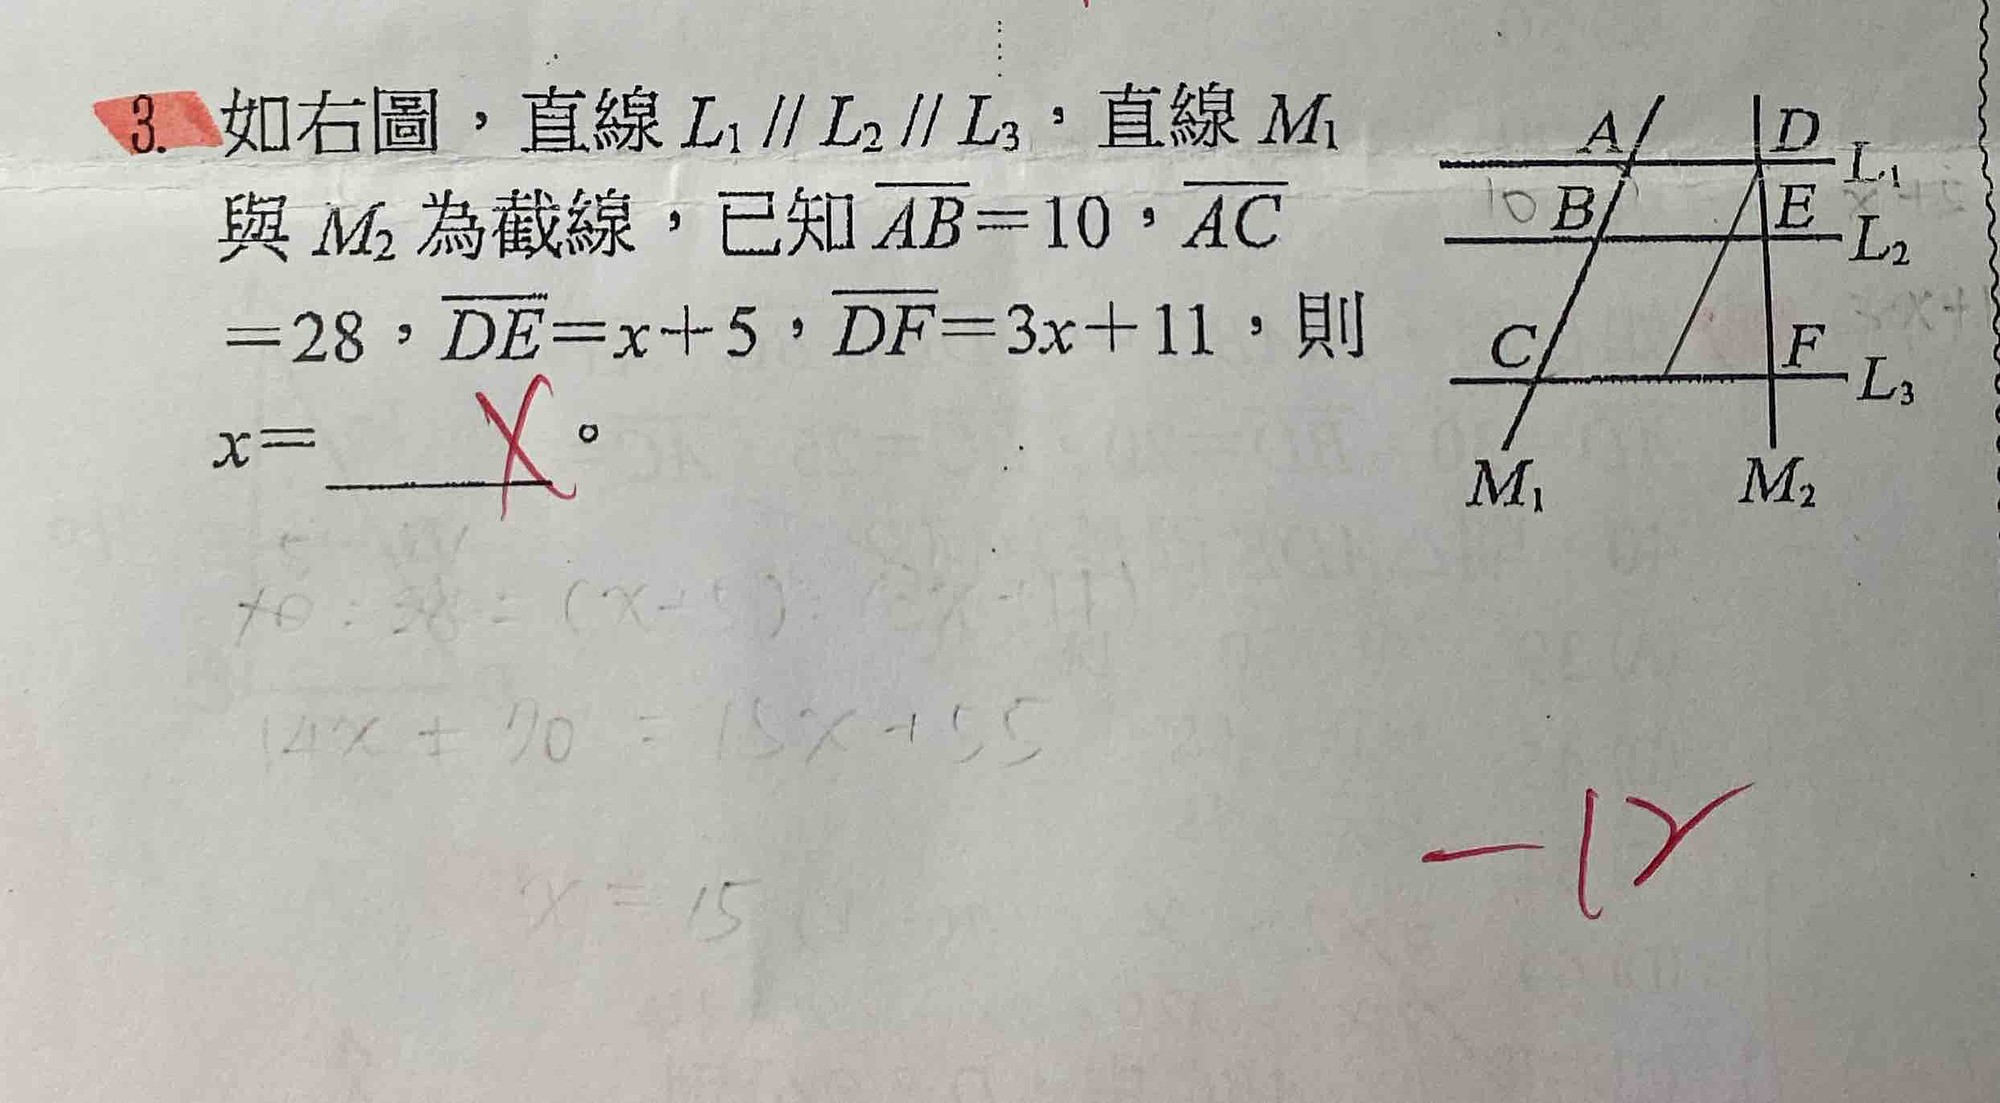 3. 如右圖，直線 L₁ // L₂ // L₃，直線 M₁
與 M₂ 為截線，已知 AB＝10，AC
＝28，DE＝x＋5，DF＝3x＋11，則
x＝____。
A D L₁
10 B E L₂
C F L₃
M₁ M₂
5 14
10 : 28 = (x+5) : (3x+11)
14x + 70 = 15x + 55
x = 15
-12